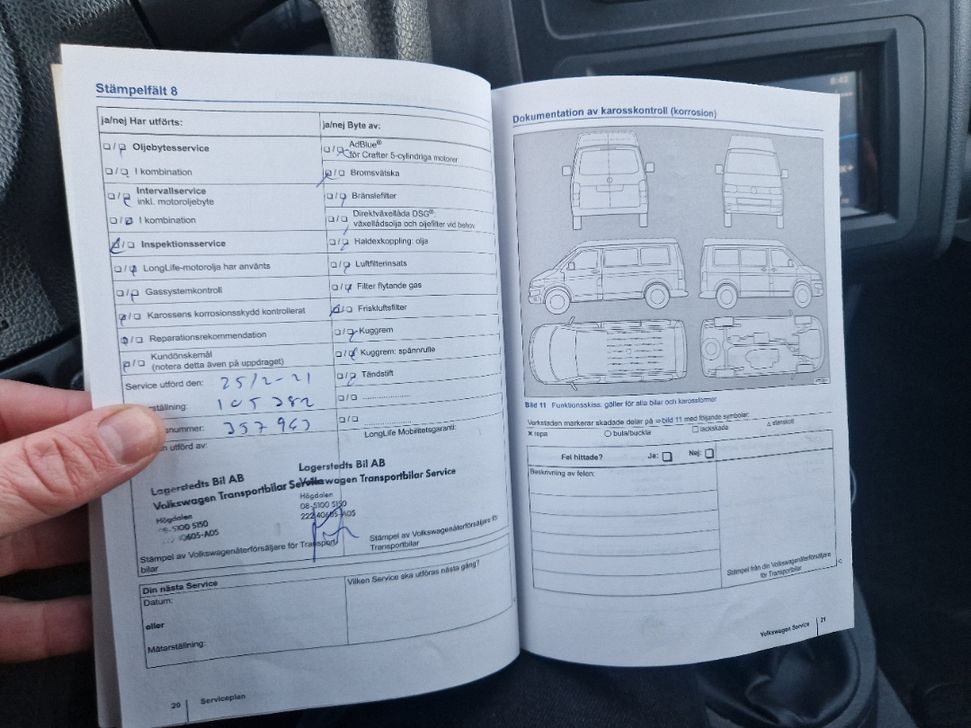 Stämpelfält 8
ja/nej Har utförts:
Oljebytesservice
I kombination
Intervallservice
inkl. motoroljebyte
I kombination
Inspektionsservice
LongLife-motorolja har använts
Gassystemkontroll
Karossens korrosionsskydd kontrollerat
Reparationsrekommendation
Kundönskemål
(notera detta även på uppdraget)
Service utförd den: 25/2-21
ställning: 105282
snummer: 357963
n utförd av:
ja/nej Byte av:
AdBlue®
för Crafter 5-cylindriga motorer
Bromsvätska
Bränslefilter
Direktväxellåda DSG®:
växellådsolja och oljefilter vid behov
Haldexkoppling: olja
Luftfilterinsats
Filter flytande gas
Friskluftsfilter
Kuggrem
Kuggrem: spännrulle
Tändstift
LongLife Mobilitetsgaranti:
Lagerstedts Bil AB
Volkswagen Transportbilar Service
Högdalen
08-5100 5150
40605-A05
Stämpel av Volkswagenåterförsäljare för Transport
bilar
Lagerstedts Bil AB
Volkswagen Transportbilar Service
Högdalen
08-5100 5150
222 40605-A05
Stämpel av Volkswagenåterförsäljare för
Transportbilar
Din nästa Service
Datum:
eller
Mätarställning:
Vilken Service ska utföras nästa gång?
20 Serviceplan
Dokumentation av karosskontroll (korrosion)
Bild 11 Funktionsskiss: gäller för alla bilar och karossformer
Verkstaden markerar skadade delar på ⇒ bild 11 med följande symboler:
× repa ○ bula/buckla □ lackskada △ stenskott
Fel hittade? Ja: Nej:
Beskrivning av felen:
Stämpel från din Volkswagenåterförsäljare
för Transportbilar
Volkswagen Service 21
8:42